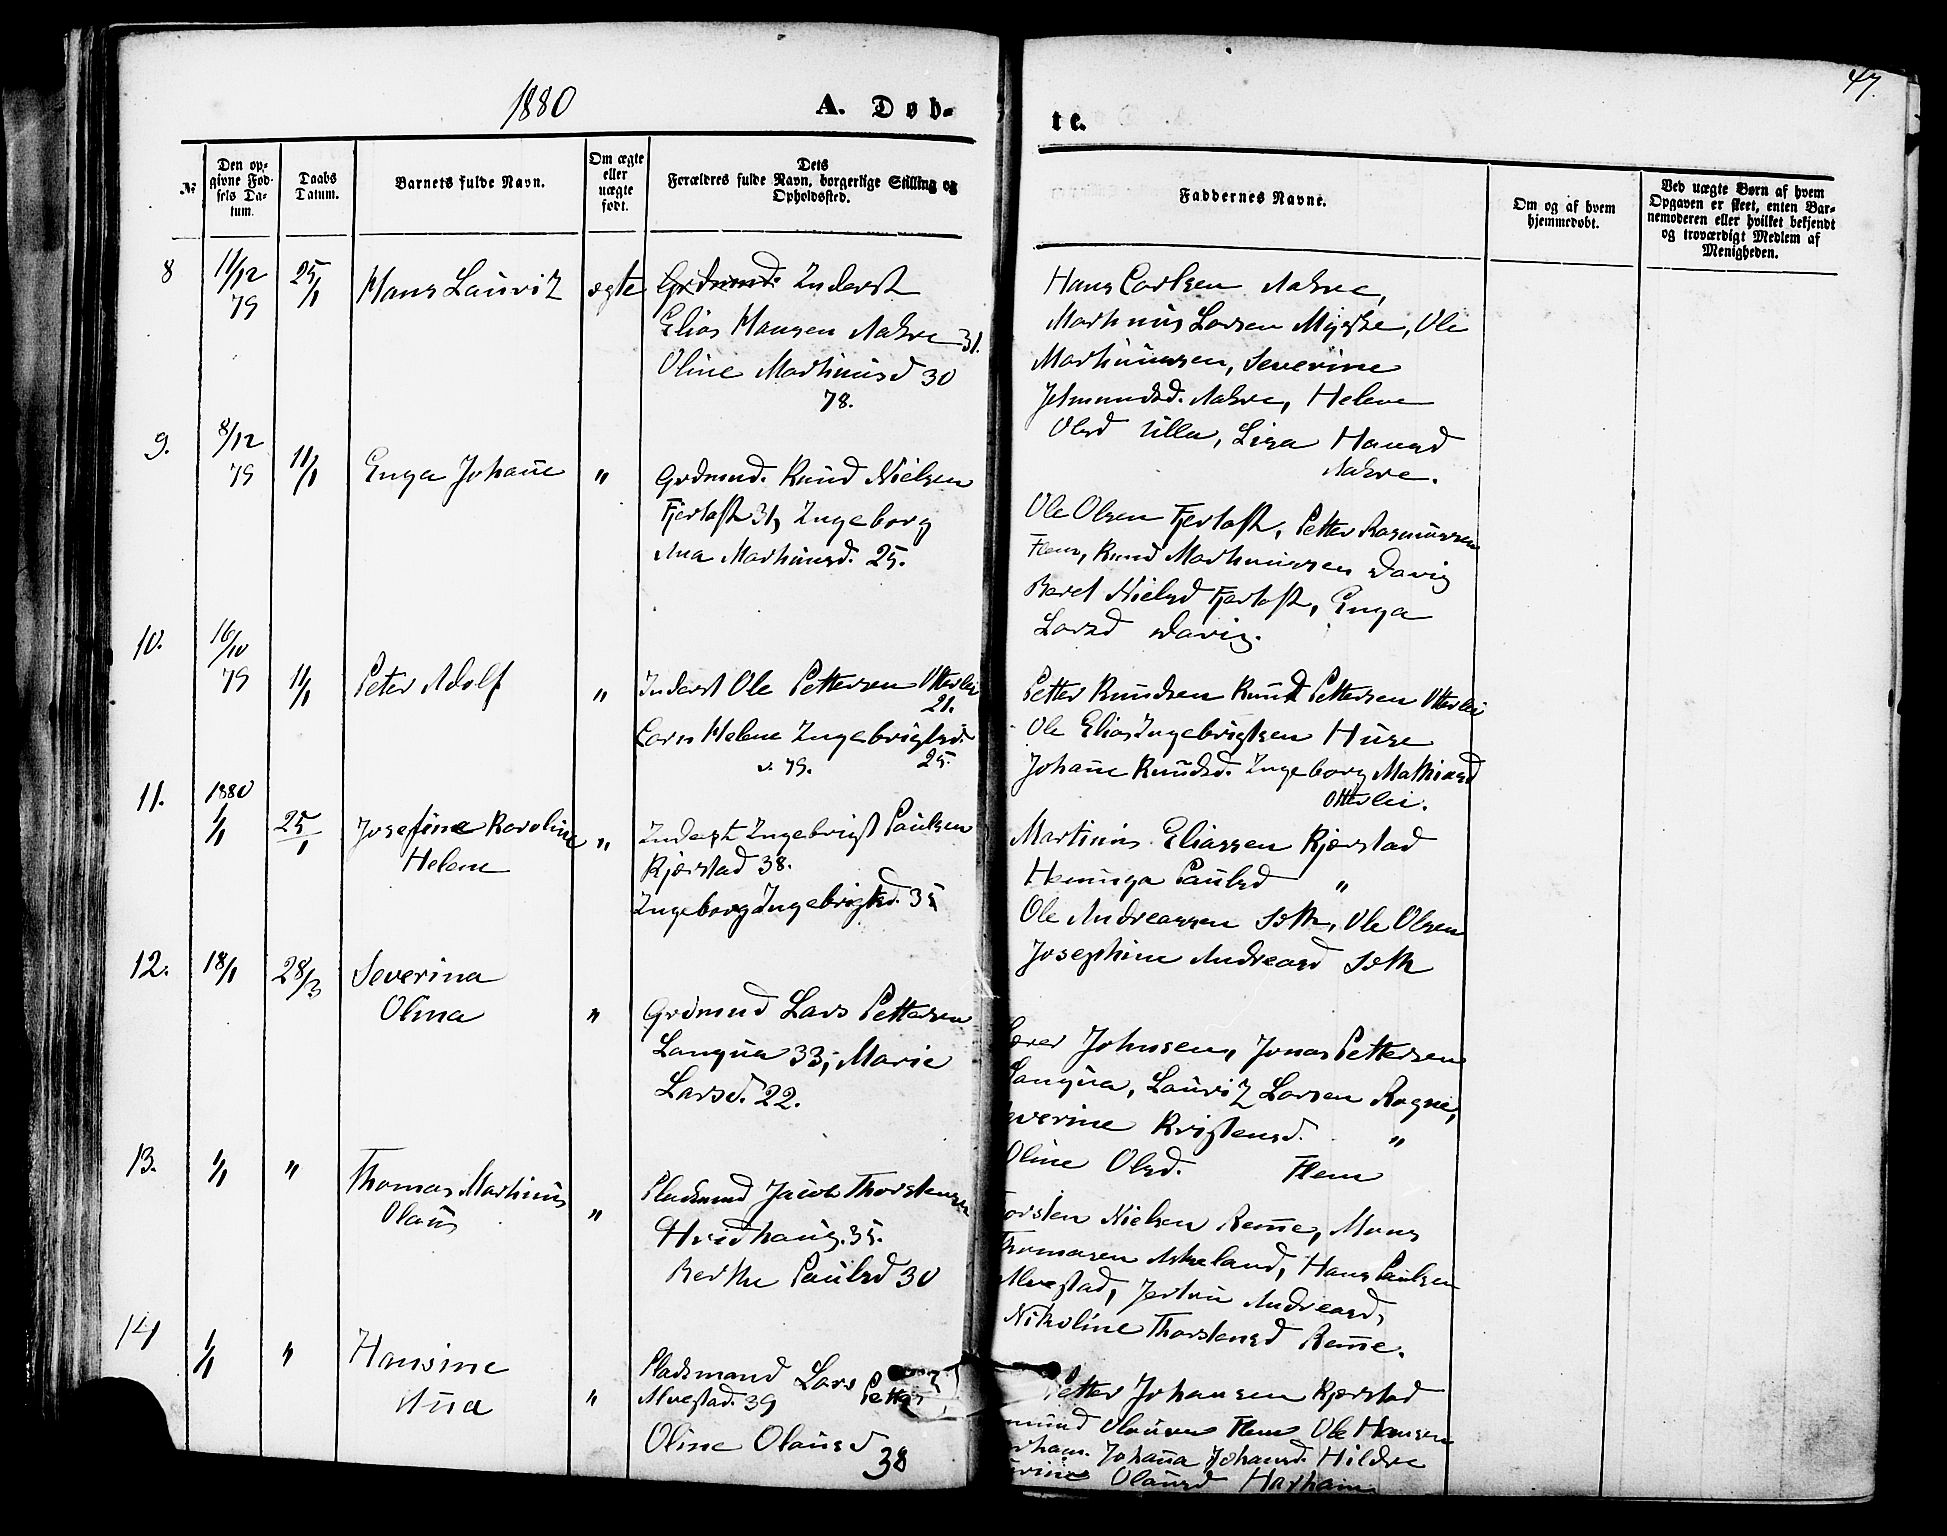 47.
1880
A. Døb-
te.
№
Den op-
givne Fød-
sels Da-
tum.
Daabs
Datum.
Barnets fulde Navn.
Om ægte
eller
uægte
født.
Dets
Forældres fulde Navn, borgerlige Stilling og
Opholdssted.
Faddernes Navne.
Om og af hvem
hjemmedøbt.
Ved uægte Børn af hvem
Opgaven er skeet, enten Bar-
nemoderen eller hvilket bekjendt
og troværdigt Medlem af
Menigheden.
8
11/12
79
25/1
Hans Lauritz
ægte
Grdmnd. Inderst
Elias Hansen Aakre 31.
Oline Martinusd 30
78.
Hans Carlsen Aakre,
Martinus Larsen Myske, Ole
Martinussen, Severine
Aakre, Helene
Olsd Ulla, Lisa Hansd
Aakre.
9.
8/12
79
11/1
Enga Johane
"
Grdmnd. Knud Nielsen
Fjertoft 31, Ingeborg
Ana Martinusd. 25.
Ole Olsen Fjertoft, Petter Rasmussen
Flem, Knud Martinussen Davig
Beret Nielsd Fjertoft, Enga
Larsd Davig.
10.
16/10
79
11/1
Peter Adolf
"
Inderst Ole Pettersen Otterlei
21.
Karn Helene Ingebrigtsd.
v. 79. 25.
Petter Knudsen Knud Pettersen Otterlei
Ole Elias Ingebrigtsen Huse
Johane Knudsd. Ingeborg Mathiasd
Otterlei.
11.
1880
1/1
25/1
Josefine Karoline
Helene
"
Inderst Ingebrigt Paulsen
Kjærstad 38.
Ingeborg Ingebrigtsd. 35
Martinus Eliassen Kjærstad
Heminga Paulsd "
Ole Andreassen Søth, Ole Olsen
Josephine Andreasd Søth
12.
18/1
28/3
Severina
Olina
"
Grdmnd Lars Pettersen
Longua 33, Marie
Larsd. 22.
Johnsen, Jonas Pettersen
Longua, Lauritz Larsen Rogne,
everine Kristensd. "
Oline Olsd. Flem
13.
1/1
"
Thomas Martinus
Olaus
"
Pladsmnd Jacob Thorstensen
Hvidhaug. 35.
Berthe Paulsd 30
orsten Nielsen Remne, Mons
Thomasen Askeland, Hans Paulsen
Alvestad, Jertrui Andreasd,
Nikoline Thorstensd Remne.
14
1/1
"
Hansine
Ana
"
Pladsmand Lars Petter
Alvestad. 39
Oline Olausd
38
Petter Johansen Kjerstad
mund Olausen Flem Ole Hansen
arham. Johana Johansd. Hildre
Olausd Harham